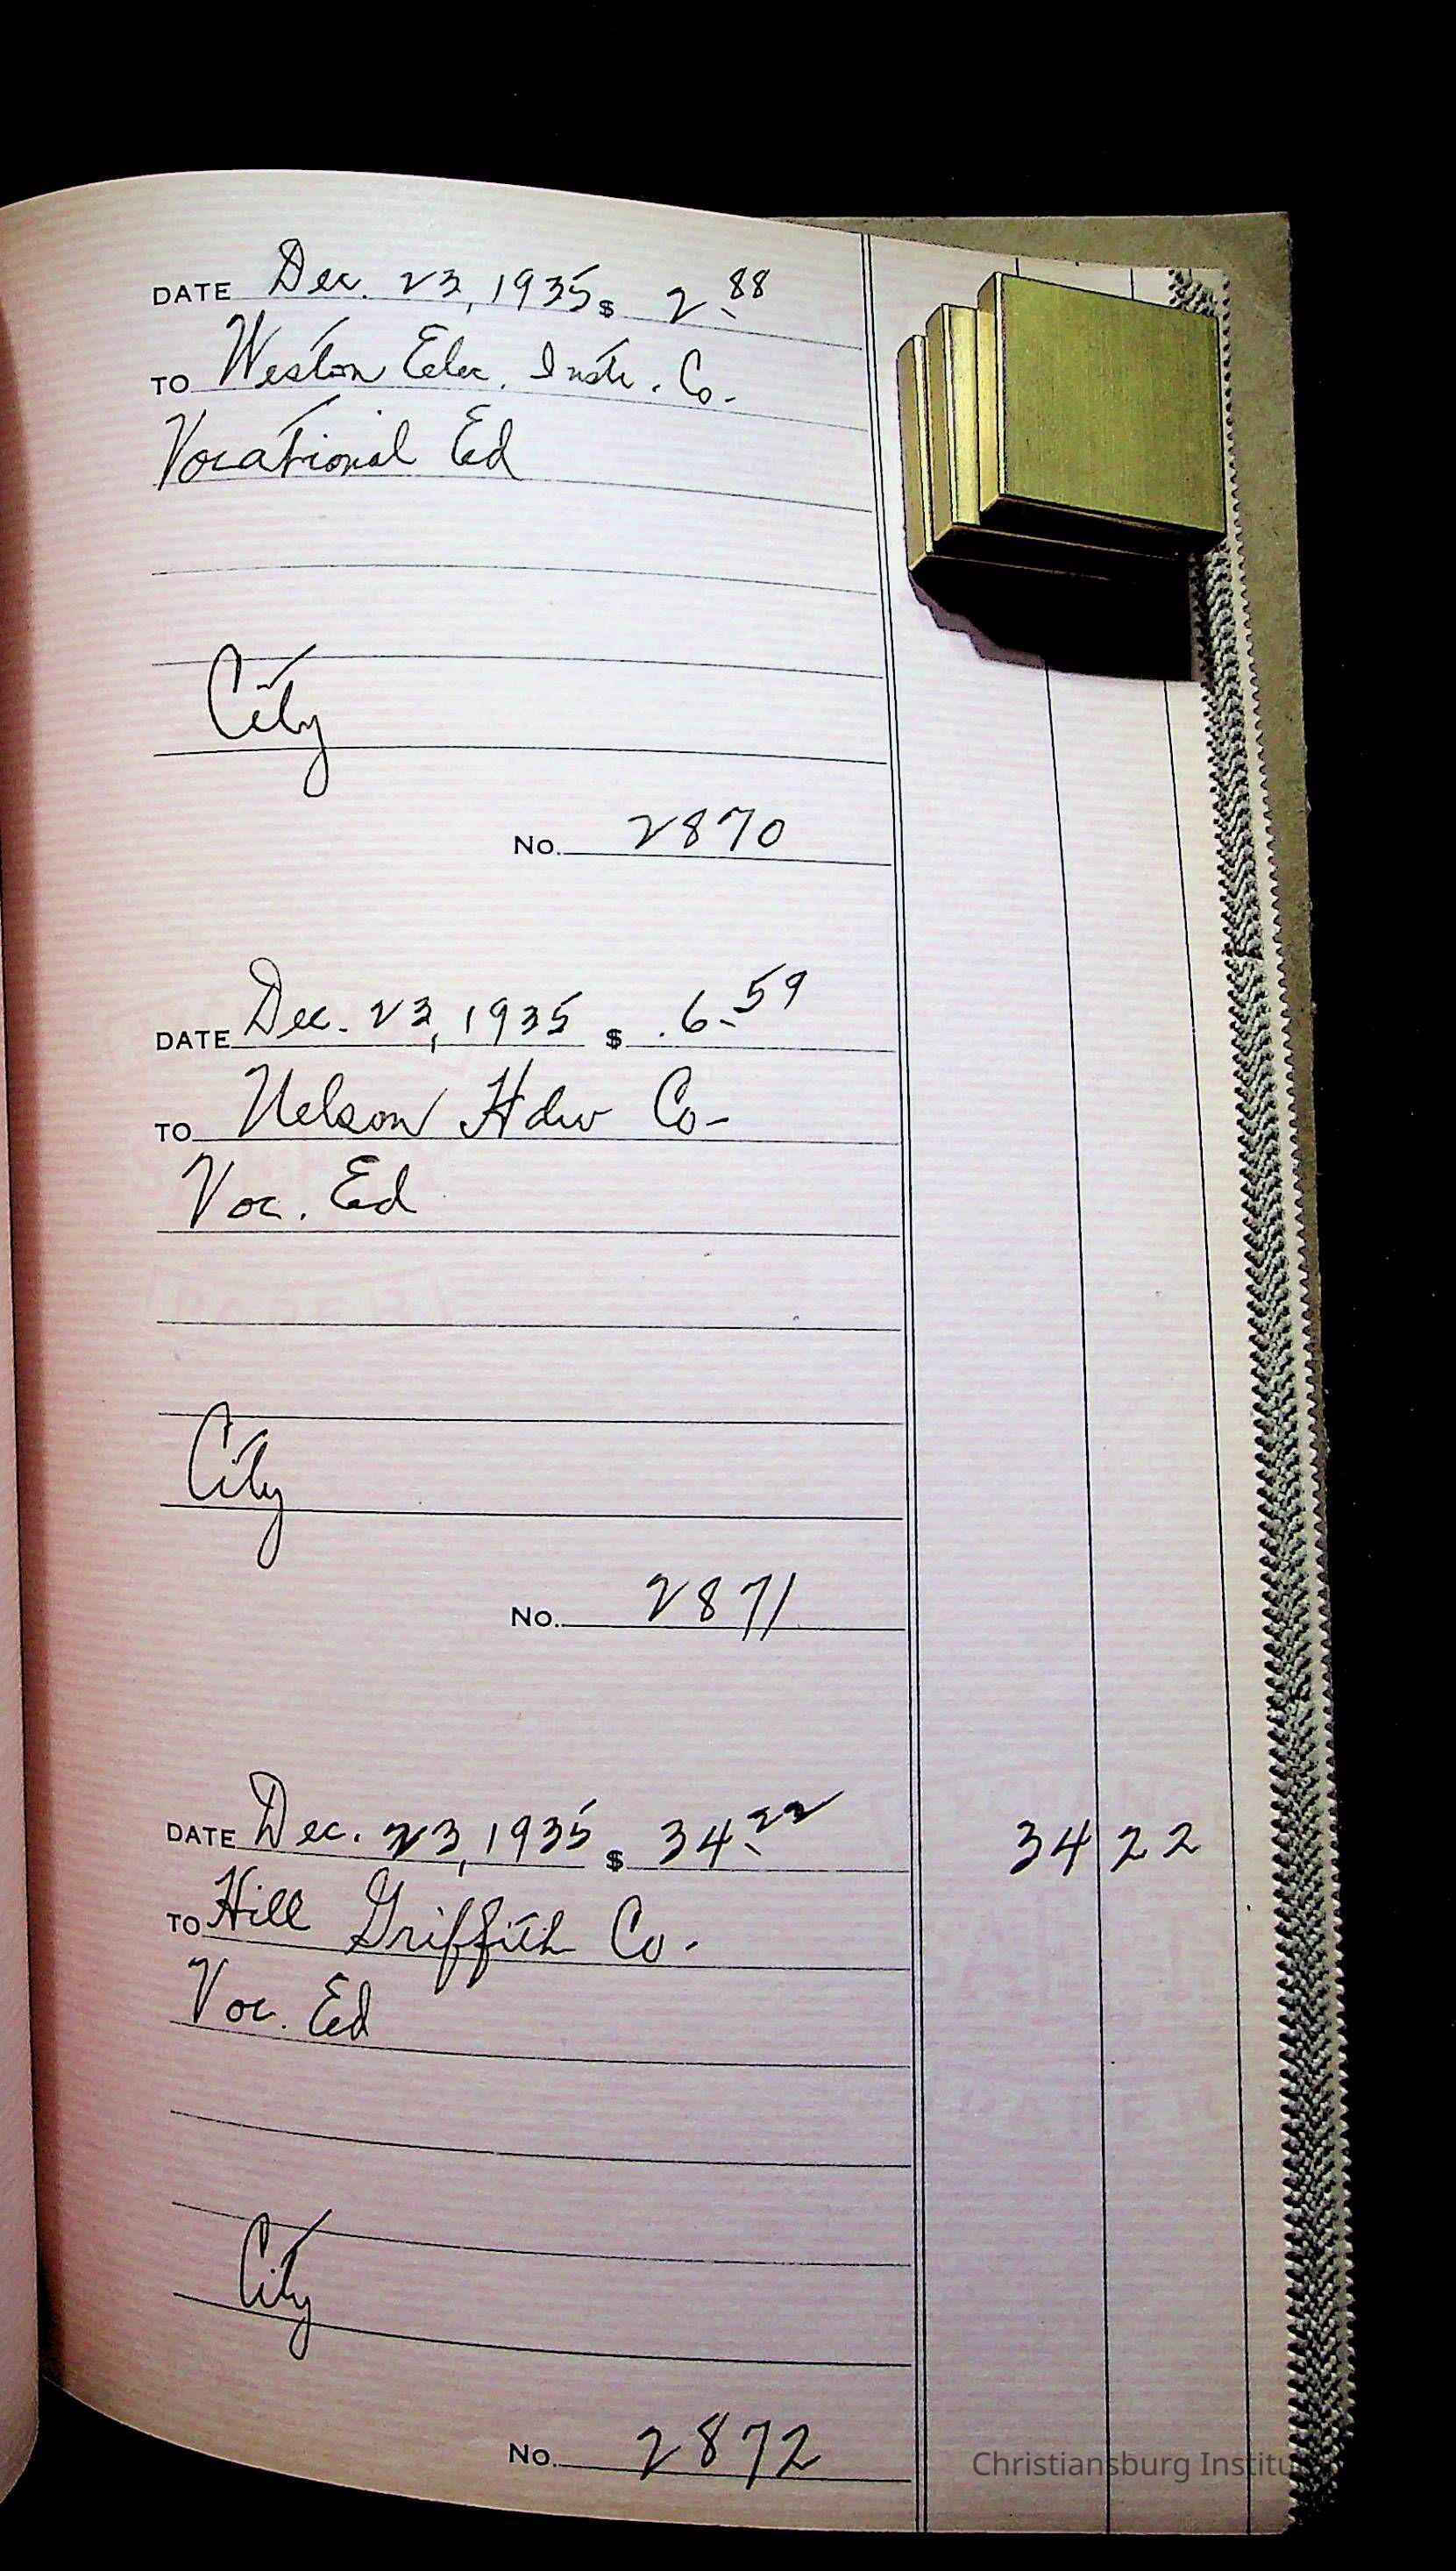 DATE Dec. 23, 1935 $ 2.88
TO Weston Elec. Instr. Co.
Vocational Ed
City
No. 2870
DATE Dec. 23, 1935 $ .6.59
TO Nelson Hdw Co-
Voc. Ed
City
No. 2871
DATE Dec. 23, 1935 $ 34.22 34 22
TO Hill Griffith Co.
Voc. Ed
City
No. 2872
Christiansburg Institu